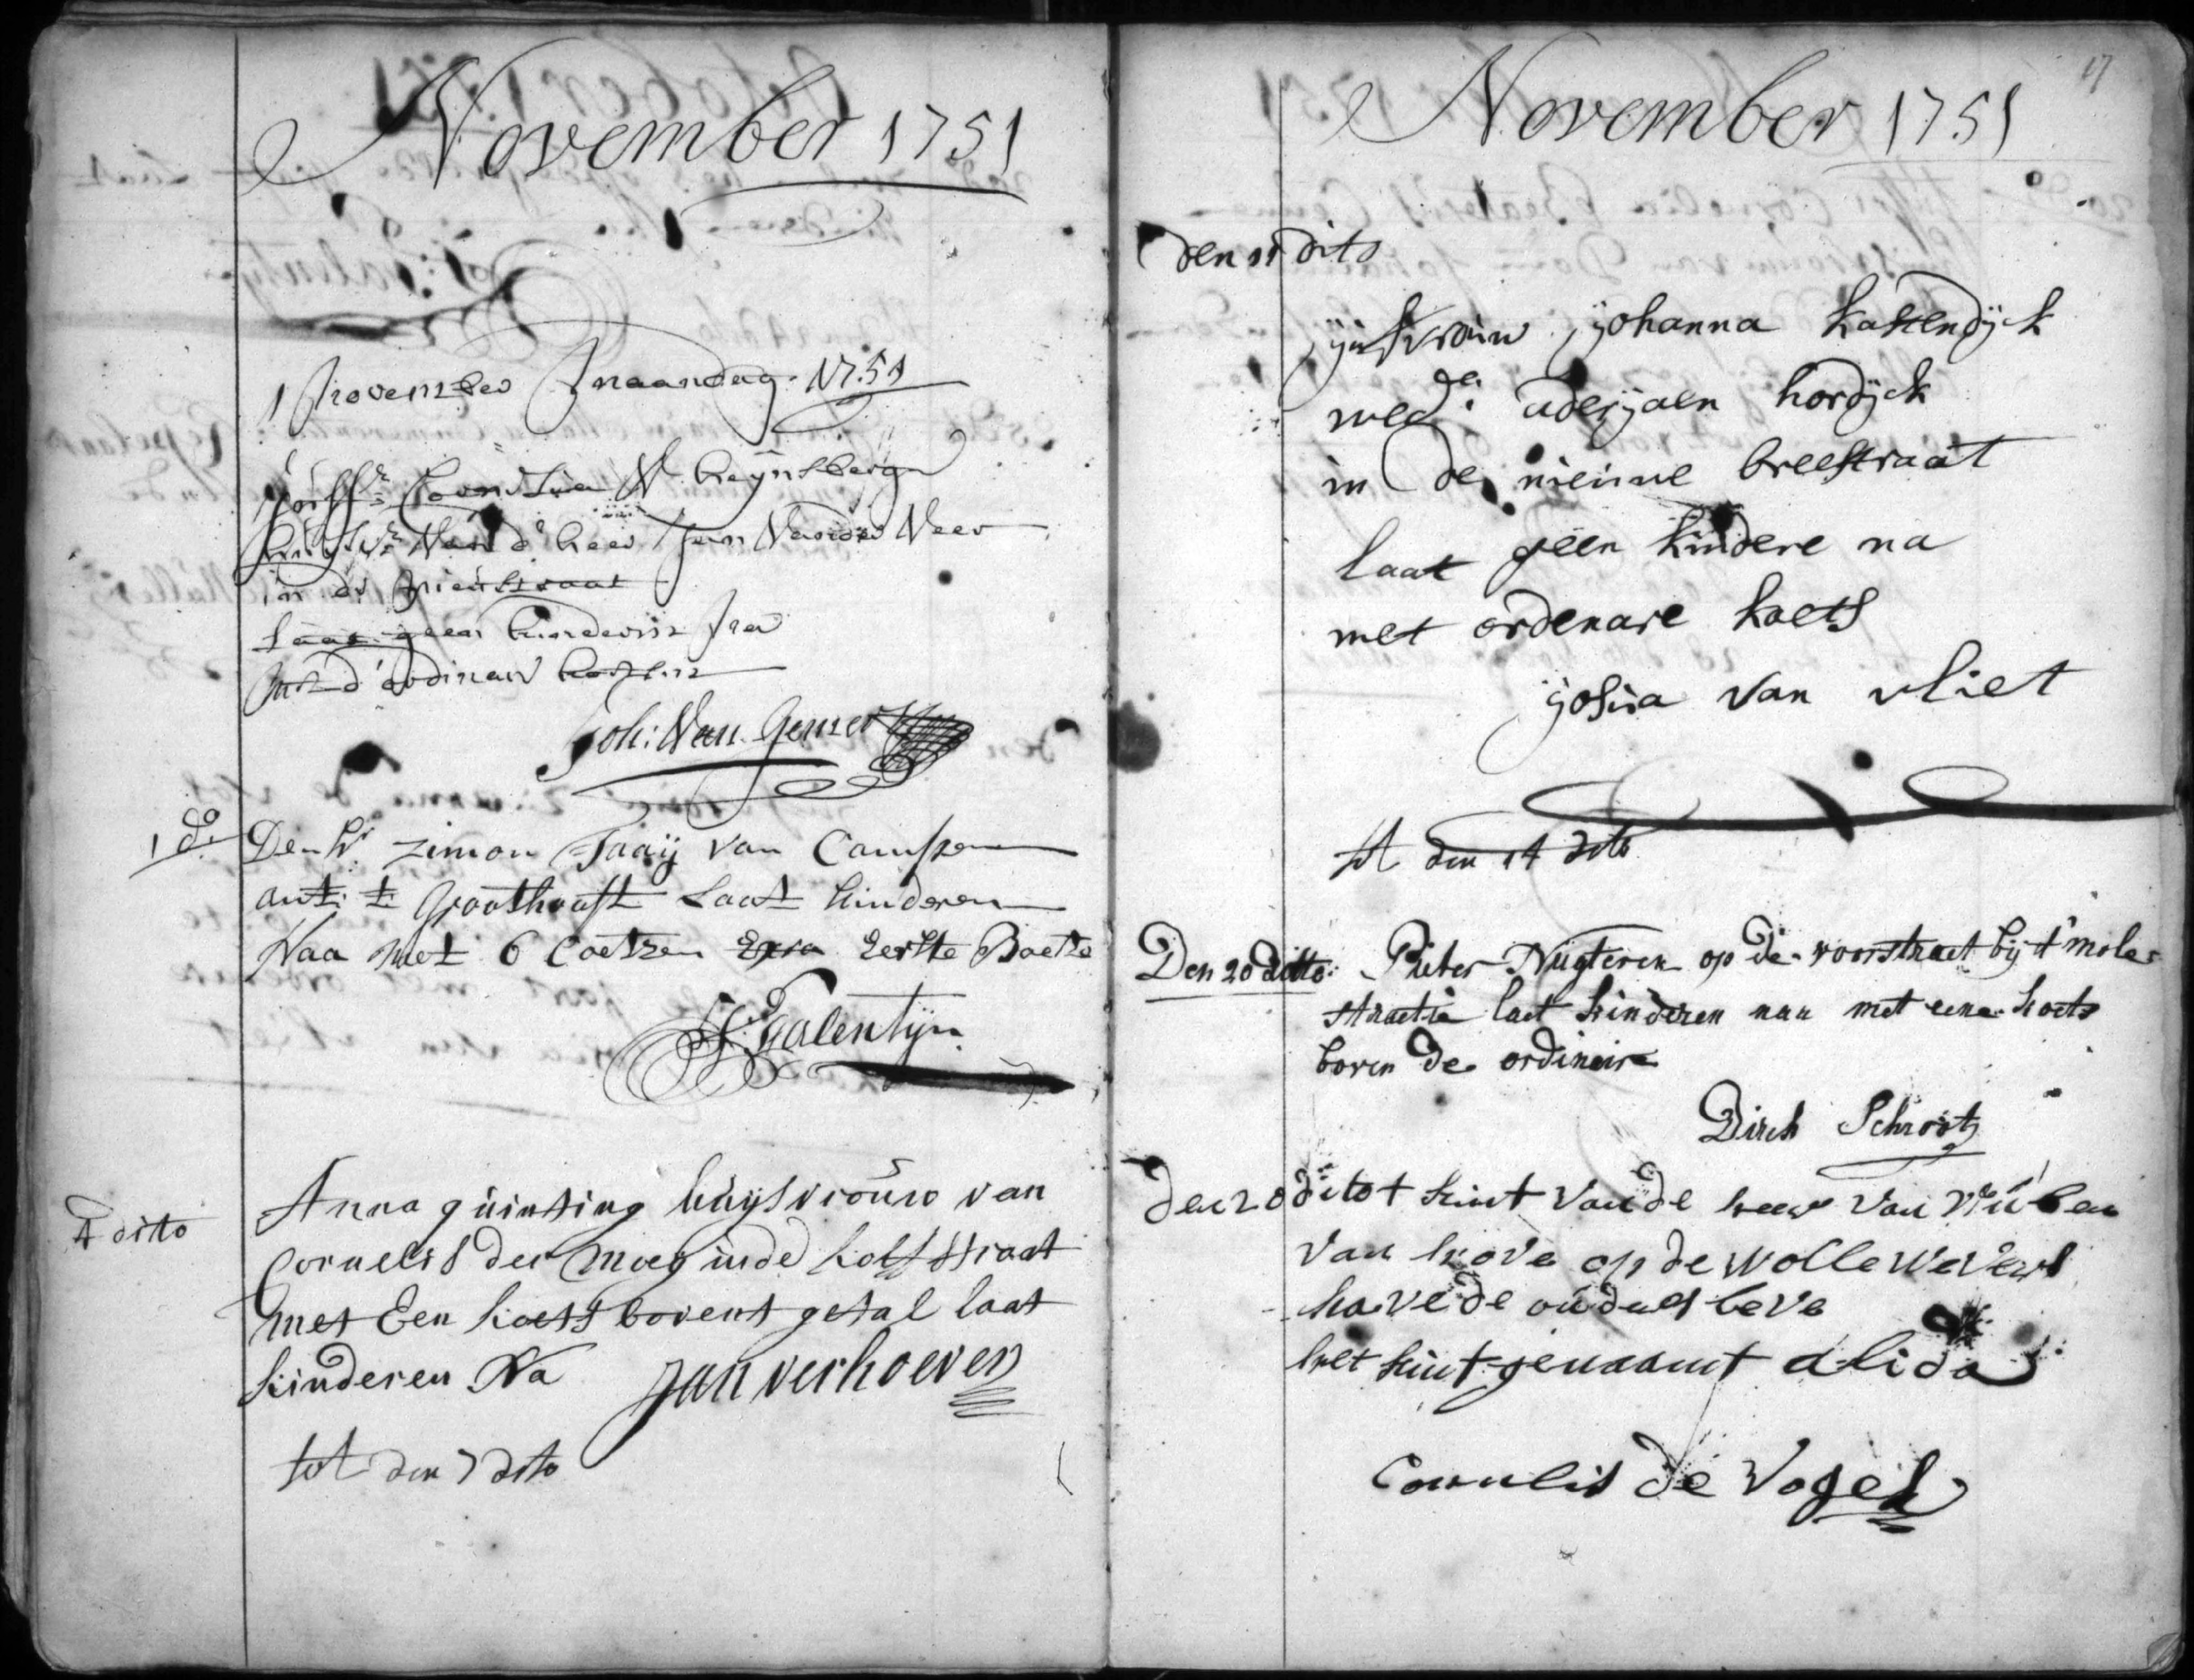 November 1751
1 november maandag 1751
Juff:r Cornelia V. heijnsberge
huijsvr: Van d heer Jan Vander Veer
in de Nieustraat
Laat geen kinderen na
met d'ordinare koetsen
Joh: Van Gemert
1 do Den Hr. Zimon Taaij van Campen
ant: t Groothooft Laat kinderen
Naa met 6 Coetzen Extra Eerste Boete
S: Valentijn
4 dito Anna quinting huijsvrouw van
Cornelis der Moeij inde kolfstraat
met Een koets bovent getal laat
kinderen Na Jan verhoeven
tot den 7 dito
17
November 1751
den 11 dito
ijufvrouw ijohanna kasendijck
wede: aderijaen hordijck
in de nieuwe breestraat
laat geen kindere na
met ordenare koets
ijosua van vliet
tot den 14 dito
Den 20 ditto: Pieter Nugteren op de voorstraet bij t mole
straetie laet kinderen naa met eene koets
boven de ordinaire
Dirck Schroot
den 20 dito t kint vande heer van
van hove op de wollewevers
have de ouders leve
het kint genaamt alida
Cornelis de Vogel